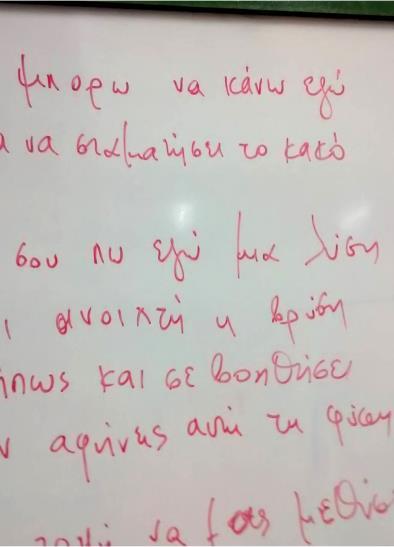 μπορω να κάνω εγώ
α να σταματήσει το κακό
σου πω εγώ μια λύση
ι ανοιχτή η βρύση
ήπως και σε βοηθήσει
ν αφήνεις αυτή τη φύση
να μας μεθύσ